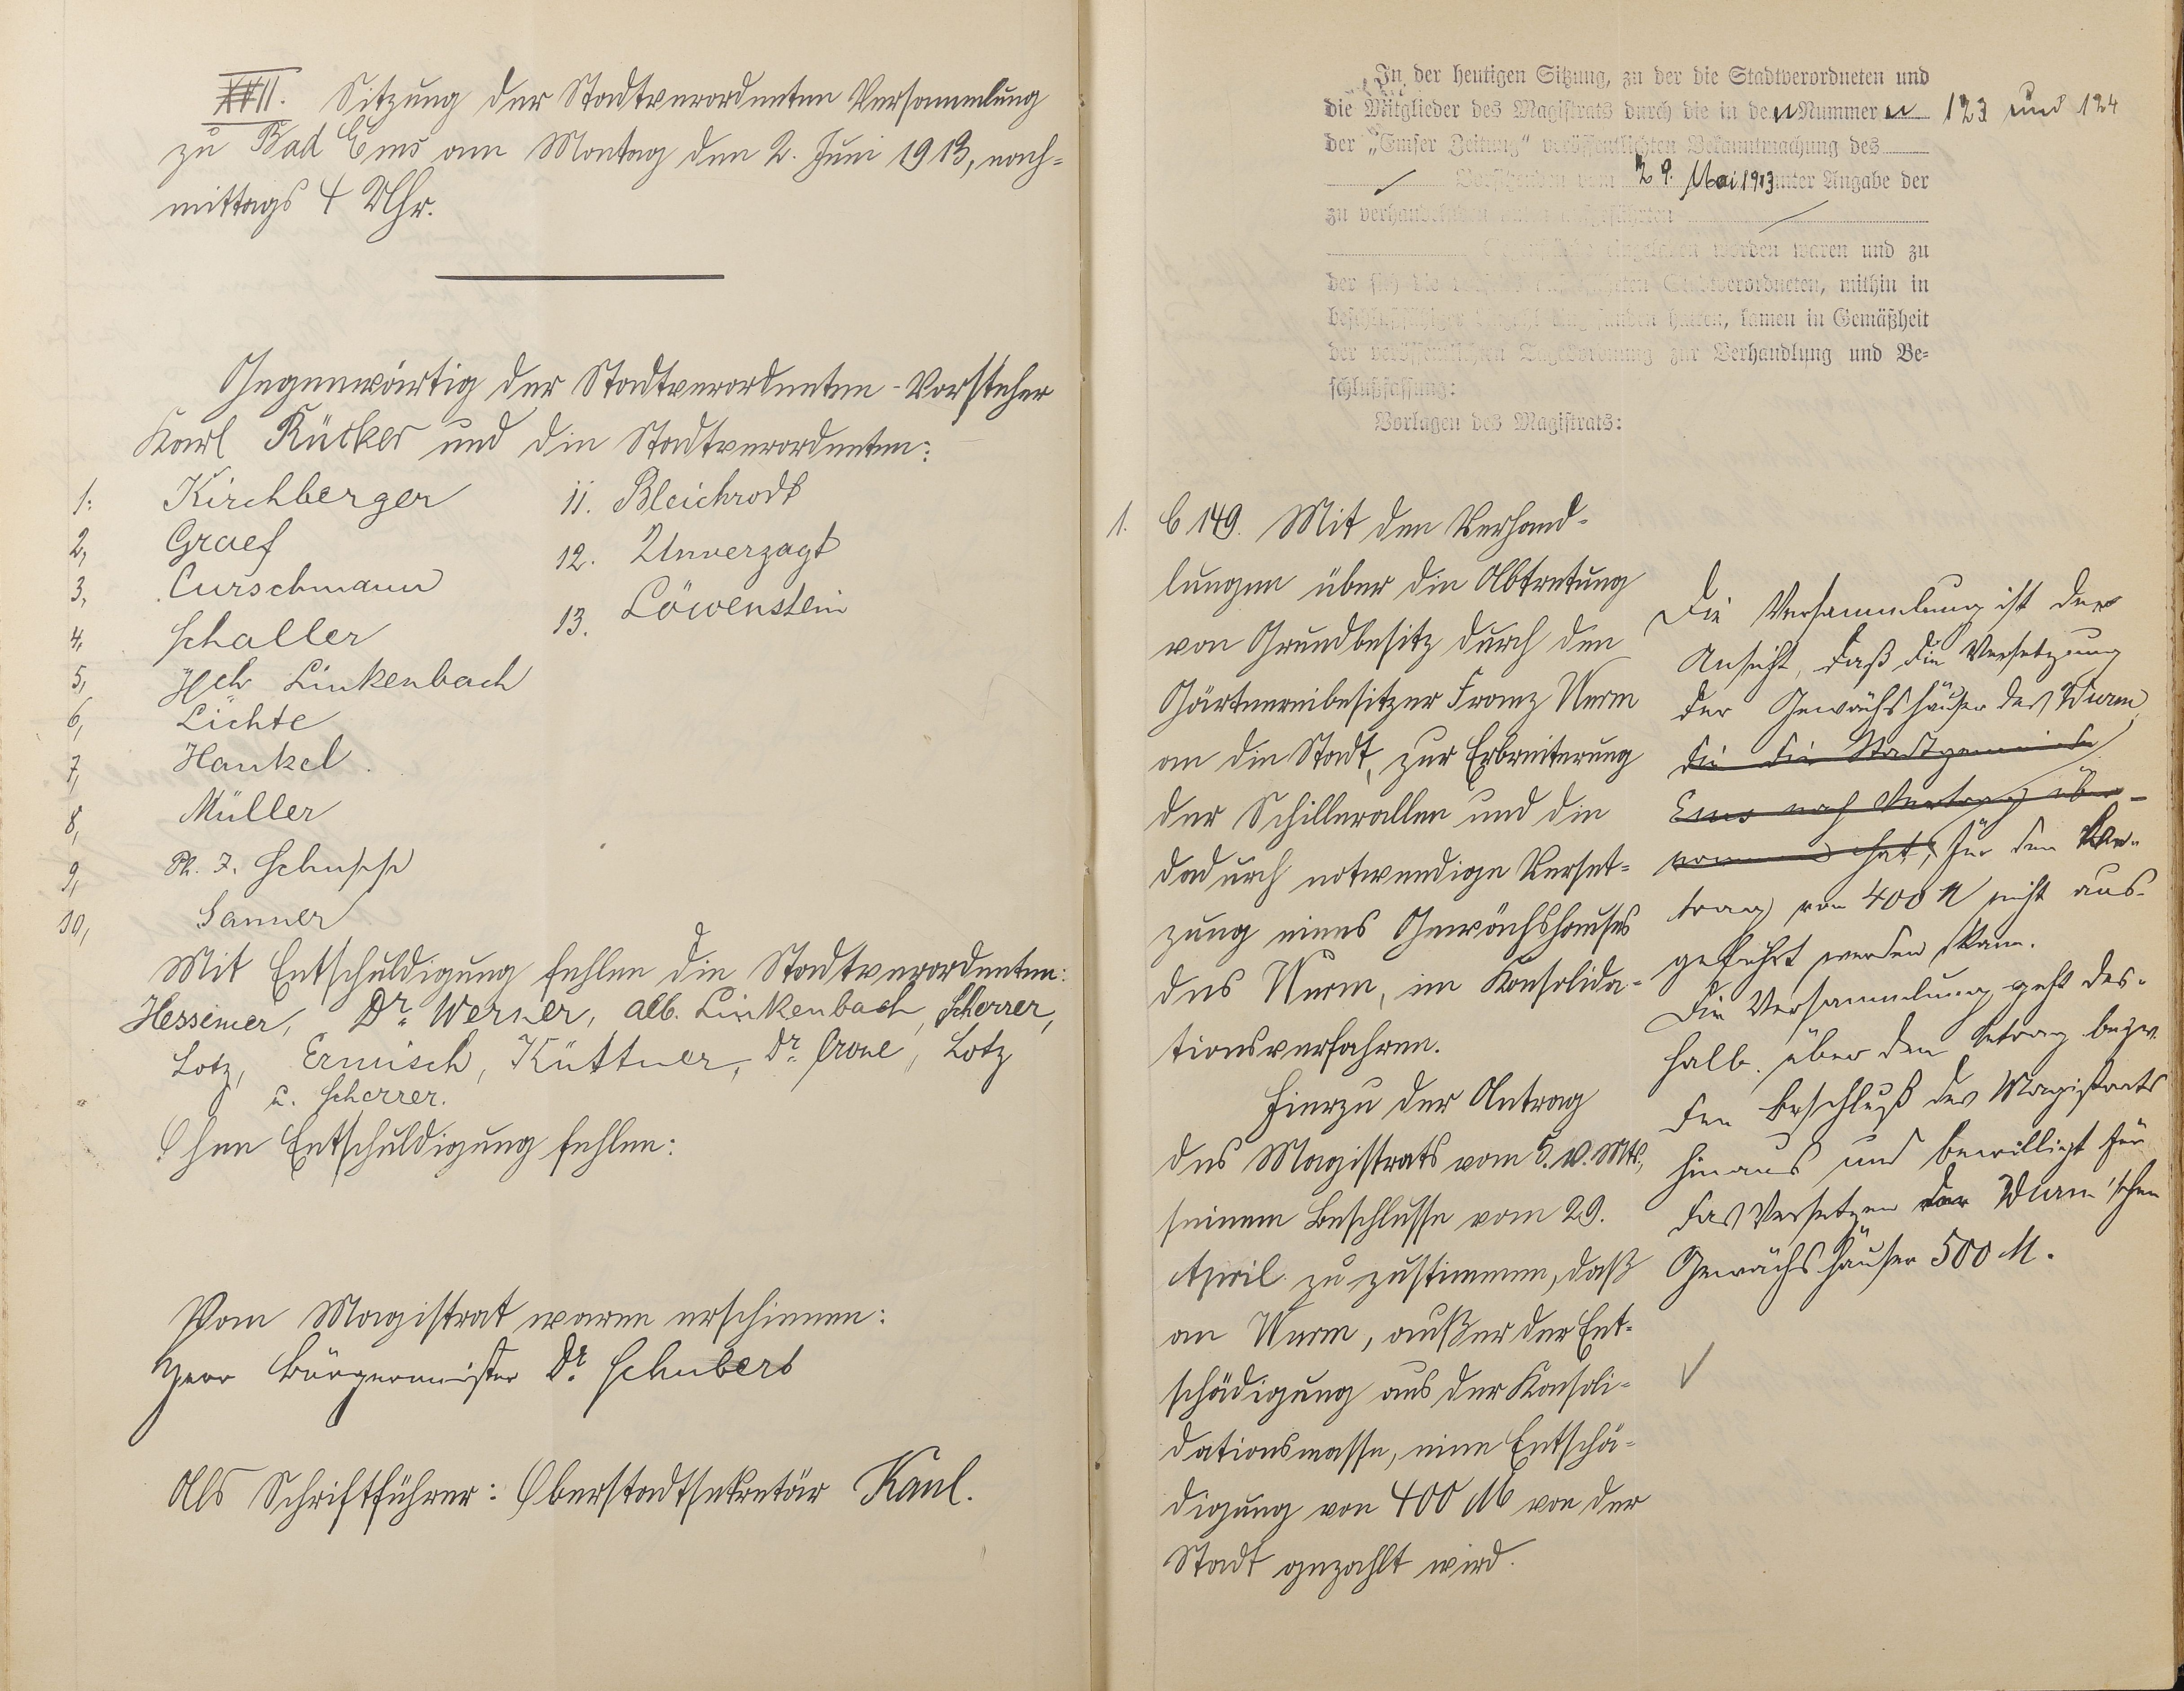 XXII. Sitzung der Stadtverordneten Versammlung
zu Bad Ems am Montag den 2. Juni 1913, nach-
mittags 4 Uhr.
Gegenwärtig der Stadtverordneten-Vorsteher
Karl Rücker und die Stadtverordneten:
1. Kirchberger
2, Graef
3, Curschmann
4, Schaller
5, Hch Linkenbach
6, Lichte
7, Hankel
8, Müller
9, Ph. J. Schupp
10, Sanner
11. Bleichrodt
12. Unverzagt
13. Löwenstein
Mit Entschuldigung fehlen die Stadtverordneten:
Hessemer, Dr. Werner, Alb. Linkenbach, Scherrer,
Lotz, Ermisch, Küttner, Dr. Crone, Lotz
u. Scherrer.
Ohne Entschuldigung fehlen:
Vom Magistrat waren erschienen:
Herr Bürgermeister Dr. Schubert
Als Schriftführer: Oberstadtsekretär Kaul.
In der heutigen Sitzung, zu der die Stadtverordneten und
die Mitglieder des Magistrats durch die in den Nummer n 123 und 124
der „Emser Zeitung“ veröffentlichten Bekanntmachung des
Vorsitzenden vom 29. Mai 1913 unter Angabe der
zu verhandelnden
eingeladen worden waren und zu
der sich die Stadtverordneten, mithin in
beschlußfähiger hatten, kamen in Gemäßheit
der veröffentlichten Tagesordnung zur Verhandlung und Be-
schlußfassung:
Vorlagen des Magistrats:
1. C 149. Mit den Verhand-
lungen über die Abtretung
von Grundbesitz durch den
Gärtnereibesitzer Franz Wurm
an die Stadt, zur Erbreiterung
der Schillerallee und die
dadurch notwendige Verset-
zung eines Gewächshauses
des Wurm, im Konsolida-
tionsverfahren.
Hierzu der Antrag
des Magistrats vom 5. v. Mts.,
seinem Beschlusse vom 29.
April zu zustimmen, daß
an Wurm, außer der Ent-
schädigung aus der Konsoli-
dationsmasse, eine Entschä-
digung von 400 M von der
Stadt gezahlt wird.
Die Versammlung ist der
Ansicht, daß die Versetzung
der Gewächshäuser des Wurm,
die die Stadtgemeinde
Ems nach Vertrag über-
nommen hat, für den Be-
trag von 400 M nicht aus-
geführt werden kann.
Die Versammlung geht des-
halb über den Betrag bezw.
den Beschluß des Magistrats
hinaus und bewilligt für
das Versetzen der Wurm'schen
Gewächshäuser 500 M.